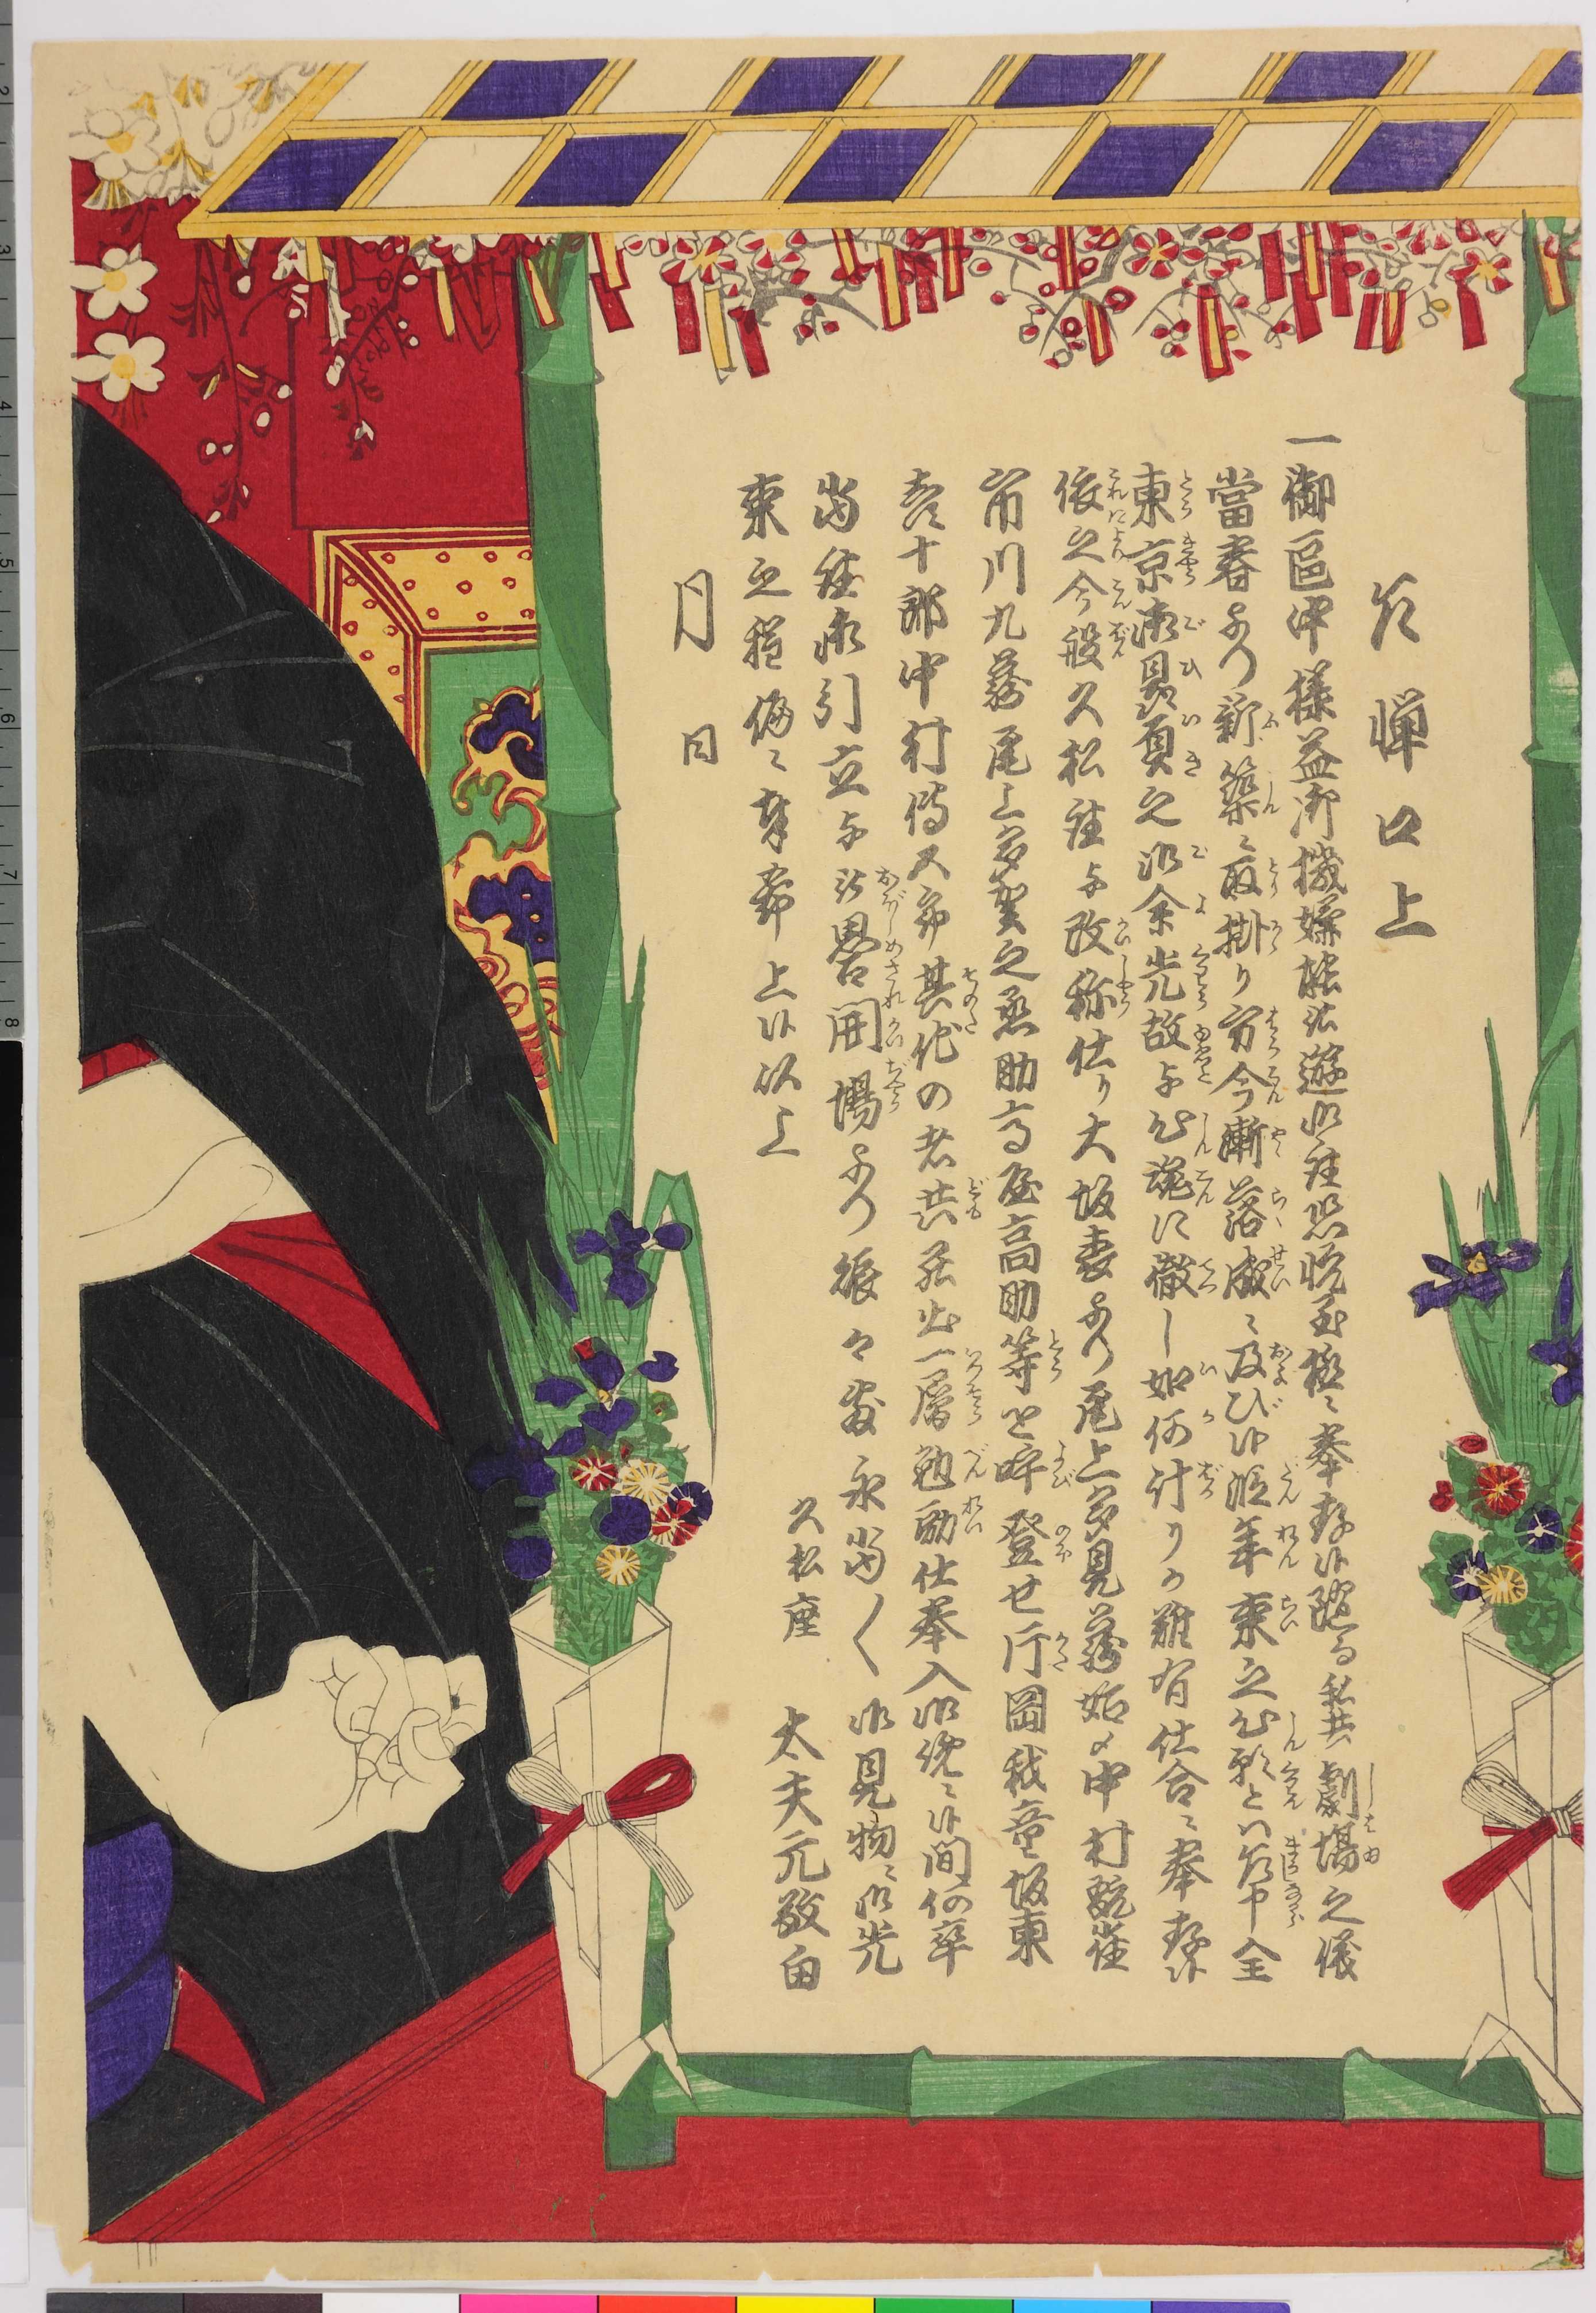 乍憚口上
一御區中様益御機嫌能被遊御座恐悦至極ニ奉存候随而私共劇場之儀
當春より新築ニ取掛り方今漸落成ニ及び候近年来之心願とハ乍申全
東京御贔屓之御余光故与心魂に徹し如何計りか難有仕合ニ奉存候
依之今般久松座与改称仕り大坂表より尾上多見蔵始メ中村翫雀
市川九蔵尾上多賀之丞助高屋高助等を呼登せ片岡我童坂東
喜十郎中村傳五郎其他の者共罷出一層勉励仕奉入御覧ニ候間何卒
當座御引立与被思召開場より賑々敷永當〱御見物ニ御光
来之程偏ニ奉希上候以上
月日
久松座 太夫元敬白